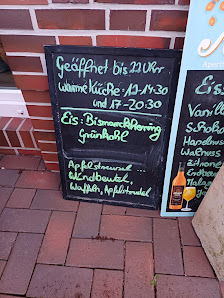 Geöffnet bis 22 Uhr
Warme Küche: 12-14:30
und 17-20:30
Eis: Bismarckhering
Grünkohl
Apfelstreusel...
Windbeutel,
Waffeln, Apfelstrudel
Eis
Vanill
Schoko
Walnuss
Zitrone
Erdbeer
Malag